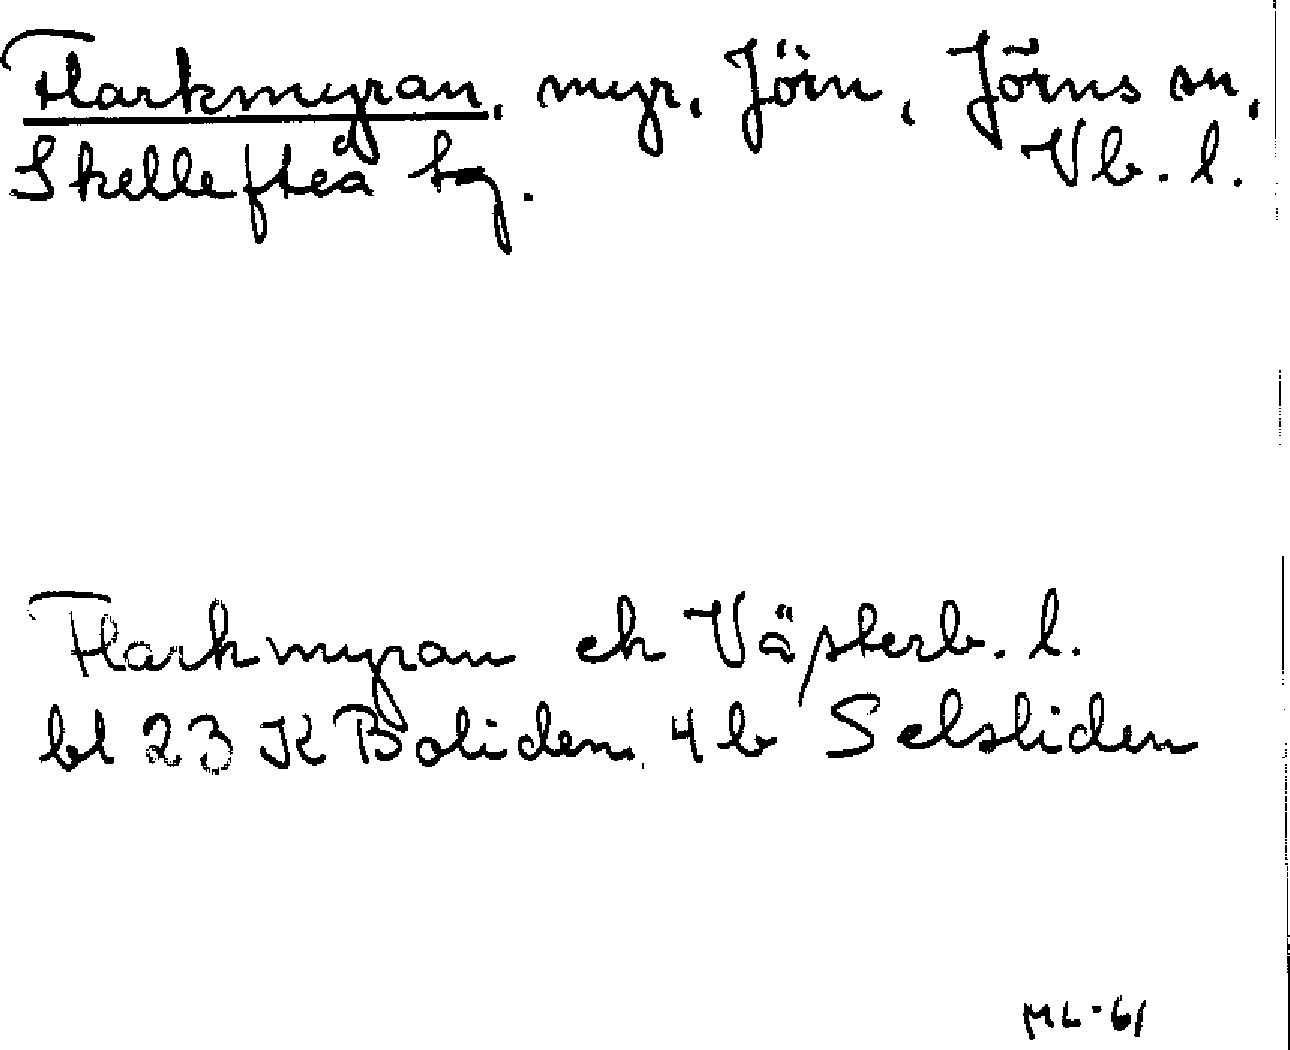 Flarkmyran, myr, Jörn, Jörns sn,
Skellefteå tg. Vb. l.
Flarkmyran ek Västerb. l.
bl 23 K Boliden, 4 b Selsliden
ML-61